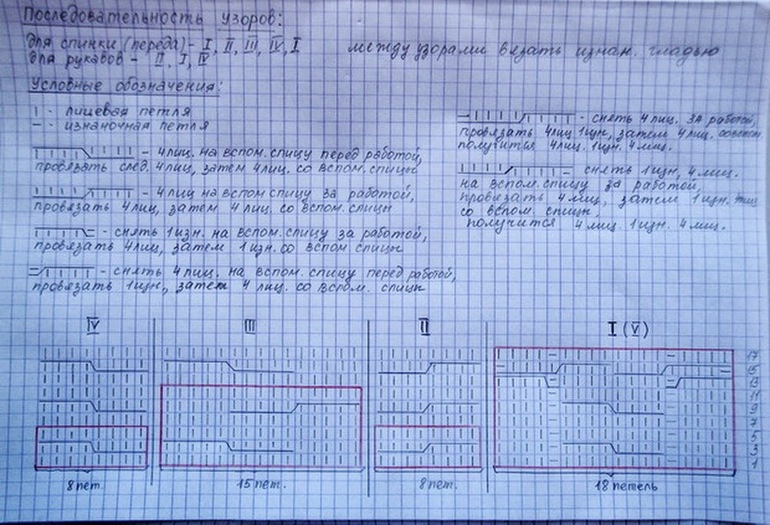 Последовательность узоров:
для спинки (переда) - I, II, III, IV, I
между узорами вязать изнан. гладью
для рукавов - II, I, IV
Условные обозначения:
| - лицевая петля
— - изнаночная петля
- 4 лиц. на вспом. спицу перед работой,
провязать след. 4 лиц, затем 4 лиц. со вспом. спицы
- 4 лиц на вспом. спицу за работой,
провязать 4 лиц, затем 4 лиц. со вспом. спицы
- снять 1 изн. на вспом. спицу за работой,
провязать 4 лиц, затем 1 изн. со вспом спицы
- снять 4 лиц. на вспом. спицу перед работой,
провязать 1 изн, затем 4 лиц. со вспом. спицы
- снять 4 лиц. за работой,
провязать 4 лиц 1 изн, затем 4 лиц.
получится 4 лиц. 1 изн. 4 лиц.
- снять 1 изн, 4 лиц.
на вспом. спицу за работой,
провязать 4 лиц, затем 1 изн.
со вспом. спицы.
получится 4 лиц 1 изн. 4 лиц.
IV III II I (V)
17
15
13
11
9
7
5
3
1
8 пет. 15 пет. 8 пет. 18 петель